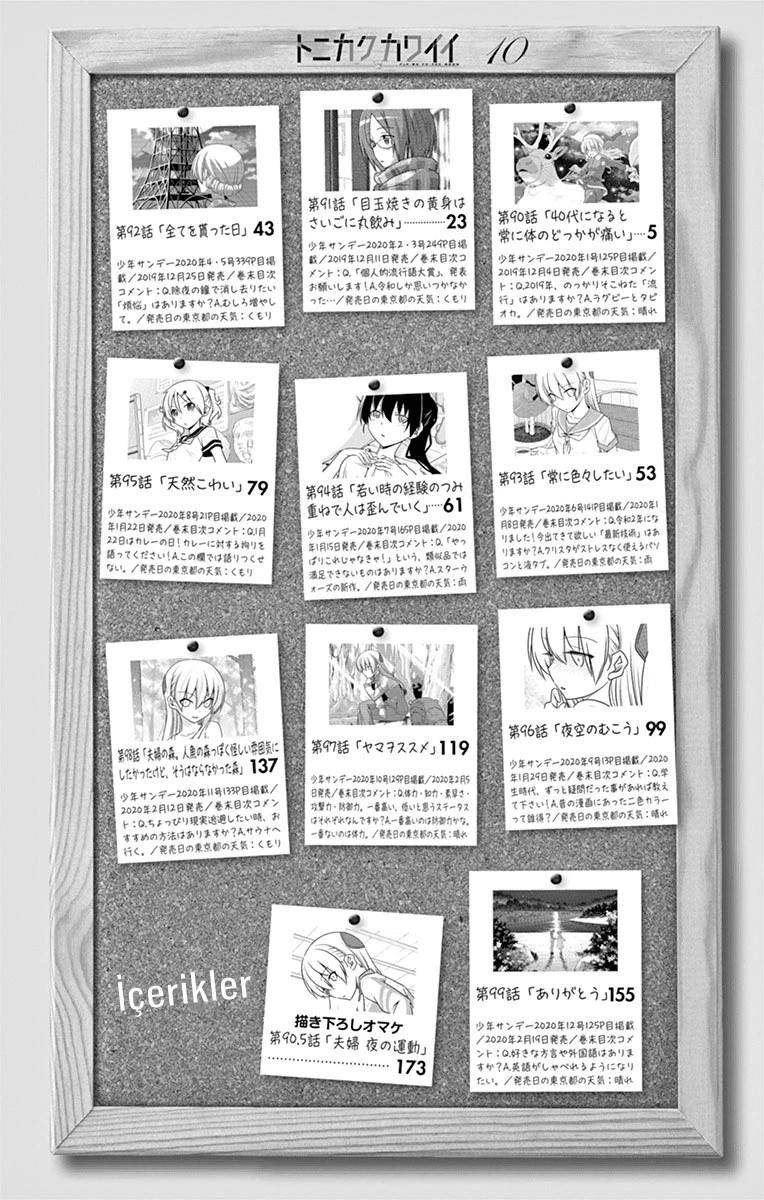 トニカクカワイイ 10
FLY ME TO THE MOON
第90話「40代になると
常に体のどっかが痛い」…5
少年サンデー2020年1号125P目掲
載/2019年12月4日発売/巻末目次
コメント:Q.2019年、のっかりそこねた「流
行」はありますか?A.ラグビーとタピ
オカ。/発売日の東京都の天気:晴れ
第91話「目玉焼きの黄身は
さいごに丸飲み」……………23
少年サンデー2020年2・3号249P目掲
載/2019年12月11日発売/巻末目次コ
メント:Q.「個人的流行語大賞」、発表
お願いします!A.令和しか思いつかなか
った…/発売日の東京都の天気:くもり
第92話「全てを貰った日」43
少年サンデー2020年4・5号339P目掲
載/2019年12月25日発売/巻末目次
コメント:Q.除夜の鐘で消し去りたい
「煩悩」はありますか?A.むしろ増やし
て。/発売日の東京都の天気:くもり
第93話「常に色々したい」53
少年サンデー2020年6号141P目掲載/2020年1
月8日発売/巻末目次コメント:Q.令和2年にな
りました!今出てきて欲しい「最新技術」はあ
りますか?A.クリスタがストレスなく使えるパソ
コンと液タブ。/発売日の東京都の天気:雨
第94話「若い時の経験のつみ
重ねで人は歪んでいく」……61
少年サンデー2020年7号165P目掲載/2020
年1月15日発売/巻末目次コメント:Q.「やっ
ぱりこれじゃなきゃ!」という、類似品では
満足できないものはありますか?A.スターウ
ォーズの新作。/発売日の東京都の天気:雨
第95話「天然こわい」79
少年サンデー2020年8号21P目掲載/2020
年1月22日発売/巻末目次コメント:Q.1月
22日はカレーの日!カレーに対する拘りを
語ってください!A.この欄では語りつくせ
ない。/発売日の東京都の天気:くもり
第96話「夜空のむこう」99
少年サンデー2020年9号13P目掲載/2020
年1月29日発売/巻末目次コメント:Q.学
生時代、ずっと疑問だった事があれば教え
て下さい!A.昔の漫画にあった二色カラー
って誰得?/発売日の東京都の天気:晴れ
第97話「ヤマヲススメ」119
少年サンデー2020年10号129P目掲載/2020年2月5
日発売/巻末目次コメント:Q.体力・知力・素早さ・
攻撃力・防御力。一番高い、低いと思うステータス
はそれぞれなんですか?A.一番高いのは防御力かな。
一番ないのは体力。/発売日の東京都の天気:晴れ
第98話「夫婦の森。人魚の森っぽく怪しい雰囲気に
したかったけど、そうはならなかった森」137
少年サンデー2020年11号133P目掲載/
2020年2月12日発売/巻末目次コメン
ト:Q.ちょっぴり現実逃避したい時、お
すすめの方法はありますか?A.サウナへ
行く。/発売日の東京都の天気:くもり
第99話「ありがとう」155
少年サンデー2020年12号125P目掲載
/2020年2月19日発売/巻末目次コメ
ント:Q.好きな方言や外国語はありま
すか?A.英語がしゃべれるようになり
たい。/発売日の東京都の天気:晴れ
描き下ろしオマケ
第90.5話「夫婦 夜の運動」
……………………………173
İçerikler